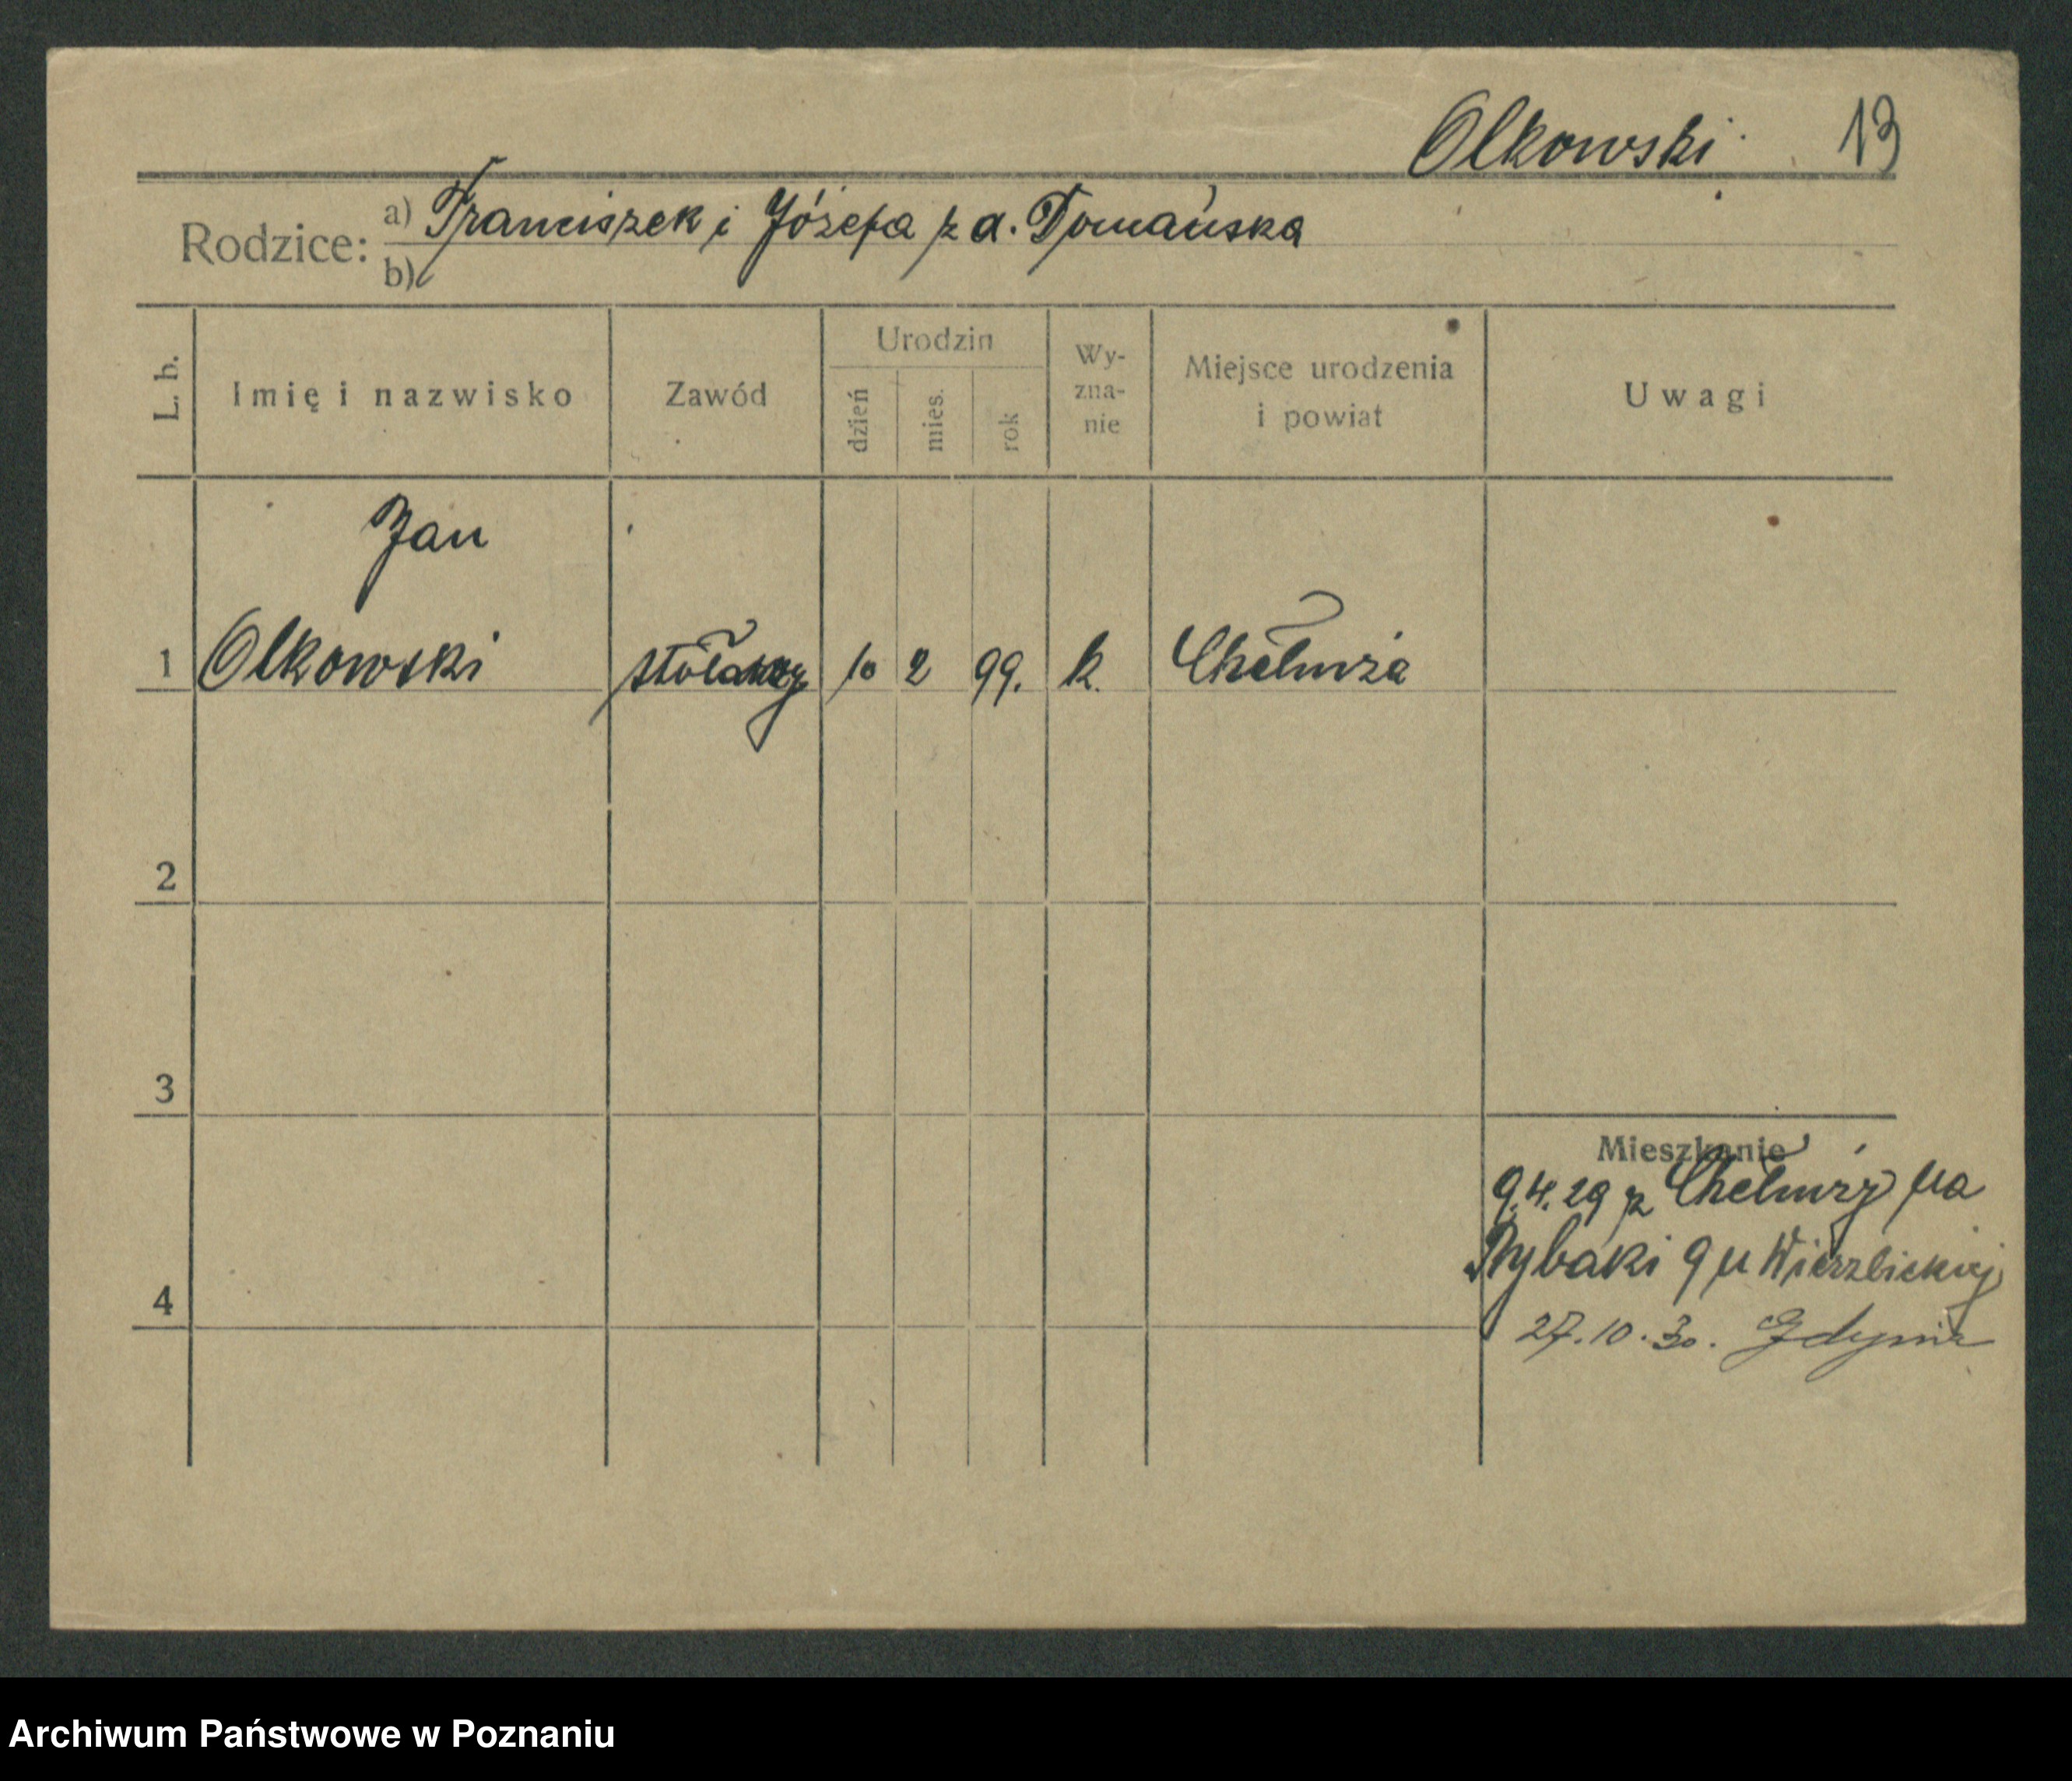 Olkowski 13
Rodzice: a) Franciszek i Józefa z d. Domańska
b)
L. b. Imię i nazwisko Zawód Urodzin dzień mies. rok Wy-zna-nie Miejsce urodzenia i powiat Uwagi
Jan
1 Olkowski stolarz 10 2 99. k. Chełmża
2
3
Mieszkanie
9.4.29 z Chełmży na
Rybaki 9 u Wierzbickiej
4
27.10.30. Gdynia
Archiwum Państwowe w Poznaniu